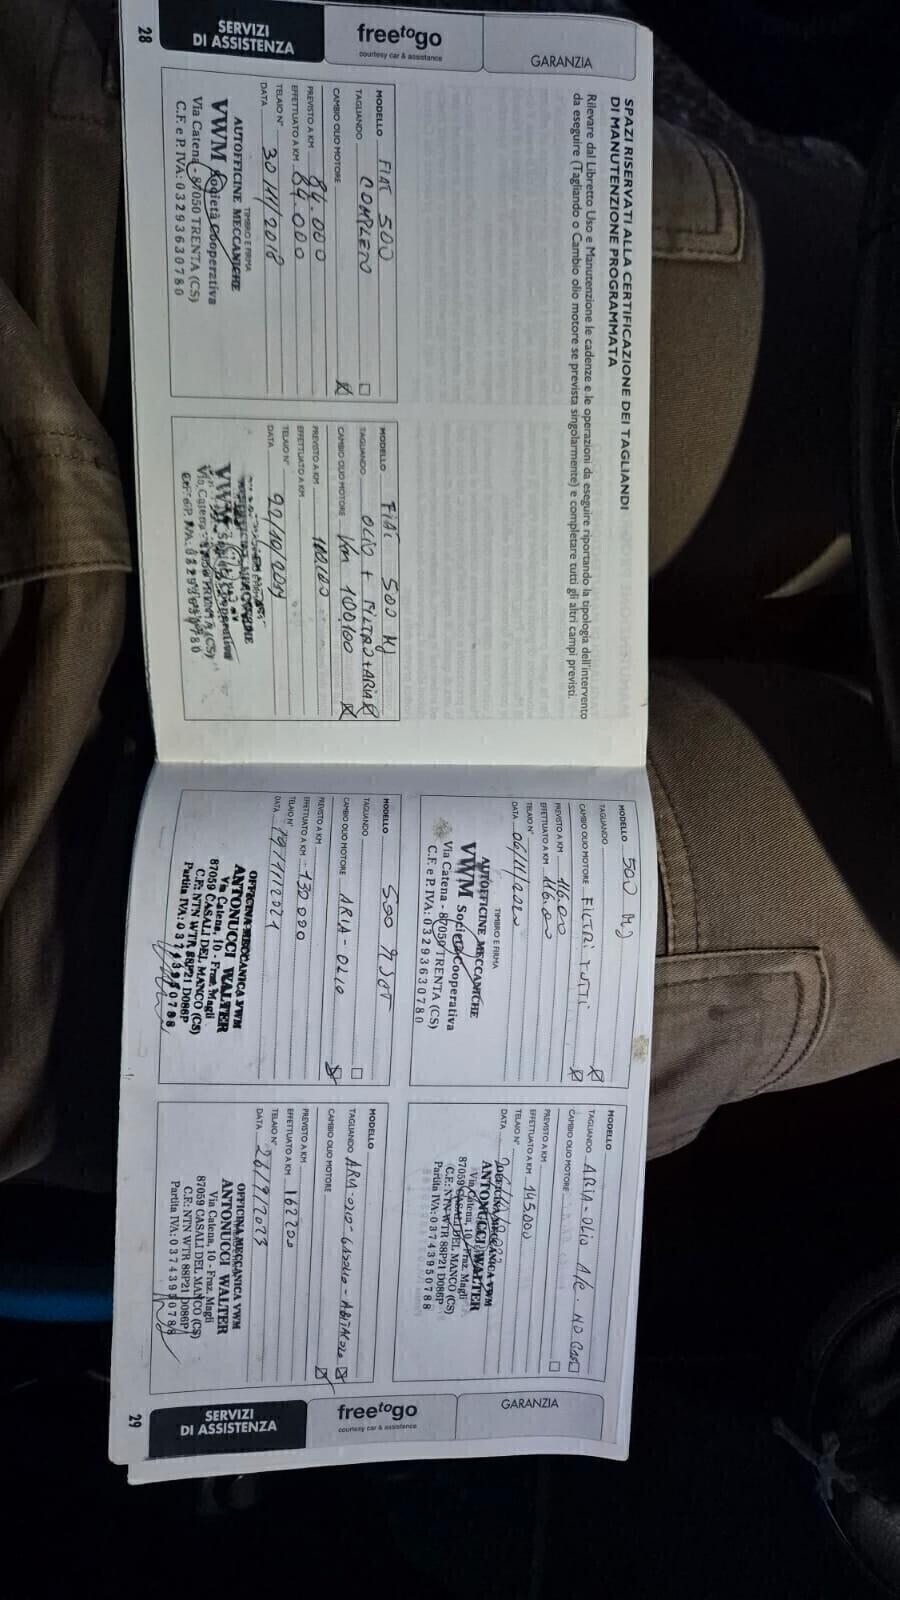 28
SERVIZI
DI ASSISTENZA
freetogo
courtesy car & assistance
GARANZIA
SPAZI RISERVATI ALLA CERTIFICAZIONE DEI TAGLIANDI
DI MANUTENZIONE PROGRAMMATA
Rilevare dal Libretto Uso e Manutenzione le cadenze e le operazioni da eseguire riportando la tipologia dell'intervento
da eseguire (Tagliando o Cambio olio motore se prevista singolarmente) e completare tutti gli altri campi previsti.
MODELLO FIAT 500
TAGLIANDO COMPLETO
CAMBIO OLIO MOTORE
PREVISTO A KM 84.000
EFFETTUATO A KM 84.000
TELAIO N°
DATA 30/11/2018
TIMBRO E FIRMA
AUTOFFICINE MECCANICHE
VWM Società Cooperativa
Via Catena - 87050 TRENTA (CS)
C.F. e P. IVA: 03293630780
MODELLO FIAT 500 MJ
TAGLIANDO OLIO + FILTRO + ARIA
CAMBIO OLIO MOTORE Km 100100
PREVISTO A KM
EFFETTUATO A KM 100.100
TELAIO N°
DATA
VWM Società Cooperativa
MODELLO 500 MJ
TAGLIANDO
CAMBIO OLIO MOTORE FILTRI TUTTI
PREVISTO A KM 116.000
EFFETTUATO A KM 116.000
TELAIO N°
DATA 06/11/2020
TIMBRO E FIRMA
AUTOFFICINE MECCANICHE
VWM Società Cooperativa
Via Catena - 87050 TRENTA (CS)
C.F. e P. IVA: 03293630780
MODELLO
TAGLIANDO ARIA - OLIO A/C. NO GAS
CAMBIO OLIO MOTORE
PREVISTO A KM
EFFETTUATO A KM 145.000
TELAIO N°
DATA
OFFICINA MECCANICA VWM
ANTONUCCI WALTER
Via Catena, 10 - Fraz. Magli
87059 CASALI DEL MANCO (CS)
C.F.: NTN WTR 88P21 D086P
Partita IVA: 03743950788
MODELLO 500
TAGLIANDO
CAMBIO OLIO MOTORE ARIA - OLIO
PREVISTO A KM
EFFETTUATO A KM 130000
TELAIO N°
DATA 19/11/2021
OFFICINA MECCANICA VWM
ANTONUCCI WALTER
Via Catena, 10 - Fraz. Magli
87059 CASALI DEL MANCO (CS)
C.F.: NTN WTR 88P21 D086P
Partita IVA: 03743950788
MODELLO
TAGLIANDO ARIA - OLIO - GASOLIO - ABITACOLO
CAMBIO OLIO MOTORE
PREVISTO A KM
EFFETTUATO A KM 162200
TELAIO N°
DATA 26/9/2023
OFFICINA MECCANICA VWM
ANTONUCCI WALTER
Via Catena, 10 - Fraz. Magli
87059 CASALI DEL MANCO (CS)
C.F.: NTN WTR 88P21 D086P
Partita IVA: 03743950788
29
SERVIZI
DI ASSISTENZA
freetogo
courtesy car & assistance
GARANZIA